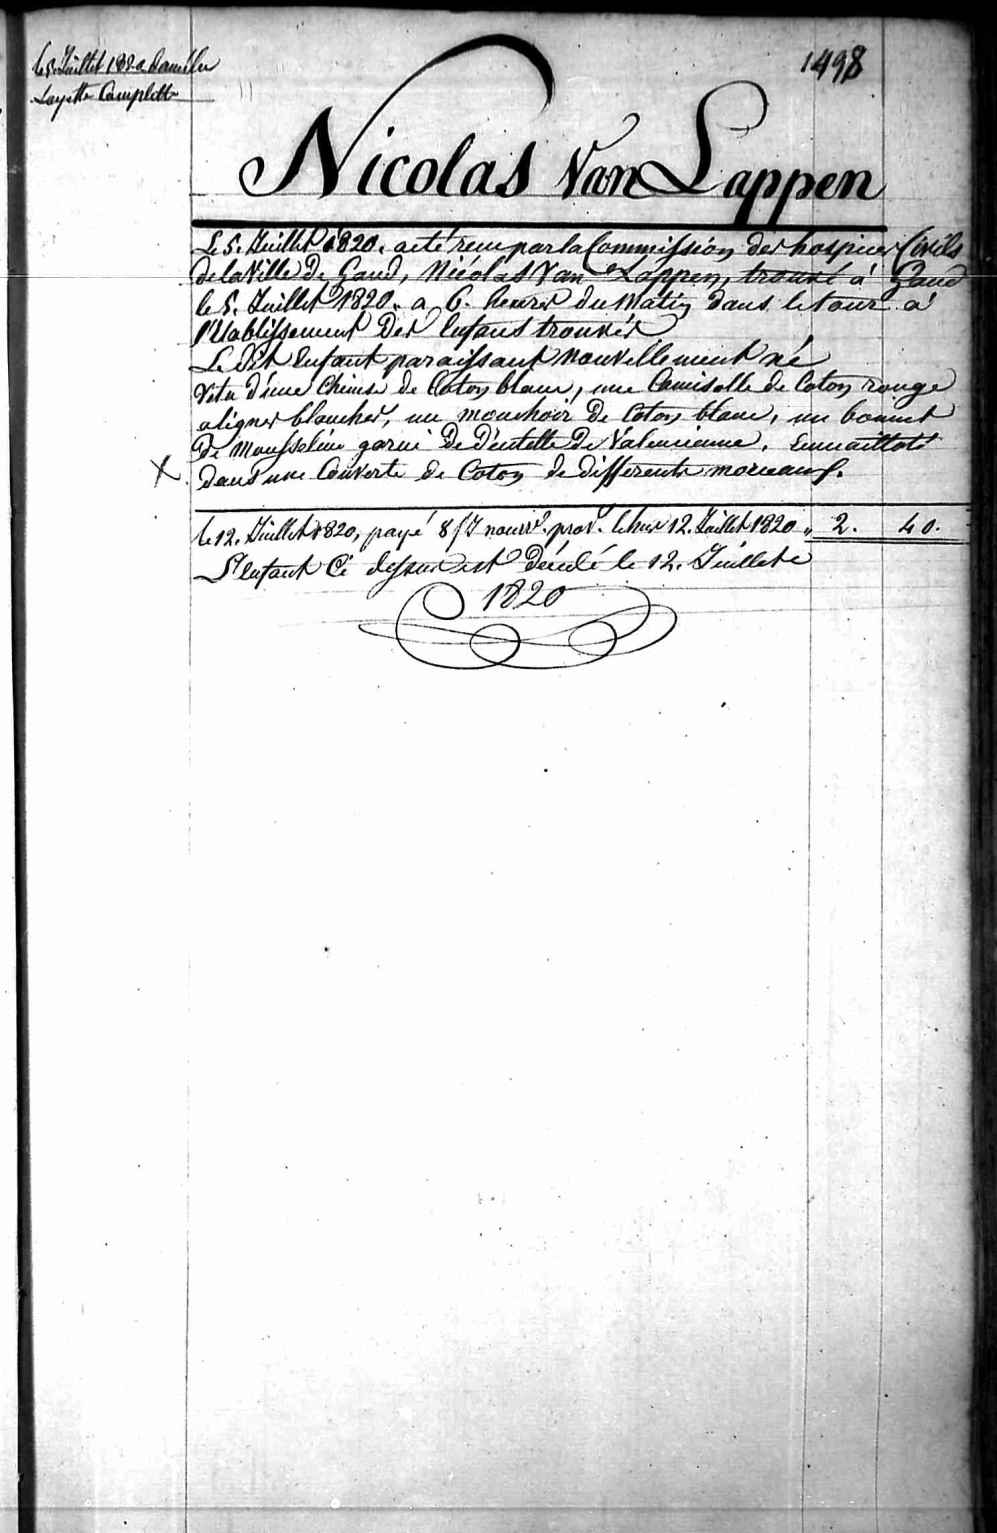 le 5. Juillet 1820 donné la
Layette Complette
1498
Nicolas Van Lappen
Le 5. Juillet 1820. a été reçu par la Commission des hospices Civils
de la Ville de Gand, Nicolas Van Lappen, trouvé à Gand
le 5. Juillet 1820. a 6. heures du Matin dans le tour à
l'Etablissement Des Enfans trouvés
Le Dit Enfant paraissant nouvellement né
Vetu d'une Chemise de Coton blanc, une Camisolle de Coton rouge
a lignes blanches, un mouchoir de Coton blanc, un bonnet
De Mousseline garni De Dentelle De Valencienne, Emmaillotté
X dans une Couverte de Coton de differents morceaux.
le 12. Juillet 1820, payé 8 f/7 nourr. prov. le 12. Juillet 1820 " 2. 40.
L'enfant Ci dessus est Décédé le 12. Juillet
1820